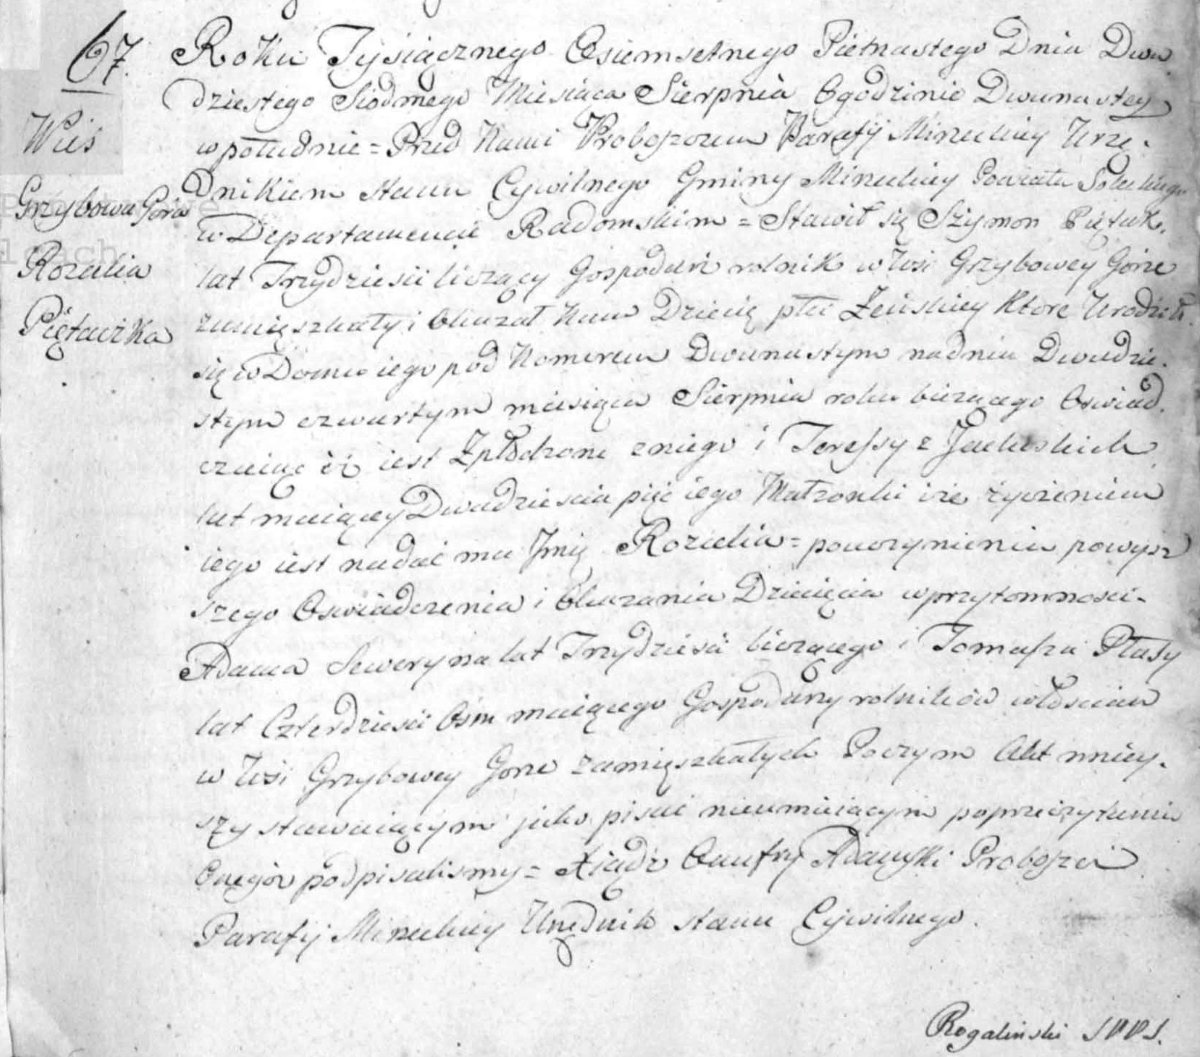 67.
Wieś
Grzybowa Gora
Rozalia
Piętawzka
Roku Tysiącznego Osiemsetnego Piętnastego Dnia Dwu
dziestego Siodmego Miesiąca Sierpnia Ogodzinie Dwunastey
wpołudnie = Przed Nami Proboszczem Parafij Mirzeckiey Urzę-
dnikiem Stanu Cywilnego Gminy Mirzeckiey Powiatu Soleckiego
w Departamencie Radomskim = Stawił się Szymon Piętak
lat Trzydzieści liczący Gospodarz rolnik w Wsi Grzybowey Górze
zamięszkały i Okazał Nam Dziecię płci Żeńskiey Ktore Urodziło
się w Domu iego pod Numerem Dwunastym nadniu Dwudzie-
stym czwartym miesiąca Sierpnia roku bieżącego Oswiad-
czaiąc iż iest Zpłodzone z niego i Teressy z
lat maiącey Dwadzieścia pięć iego Małżonki i że życzeniem
iego iest nadać mu Jmię Rozalia = pouczynieniu powysz
szego Oswiadczenia i Okazania Dziecięcia wprzytomności-
Adama Seweryna lat Trzydzieści liczącego i Tomasza Ptasy
lat Czterdzieści Osm maiącego Gospodarzy rolników włoscian
w Wsi Grzybowey Gorze zamięszkałych Poczym Akt niniey-
szy stawaiącym jako pisać nieumieiącym poprzeczytaniu
Onegoż podpisaliśmy = Xiądz Onufry Adamski Proboszcz
Parafij Mirzeckiey Urzędnik Stanu Cywilnego.
Rogaliński